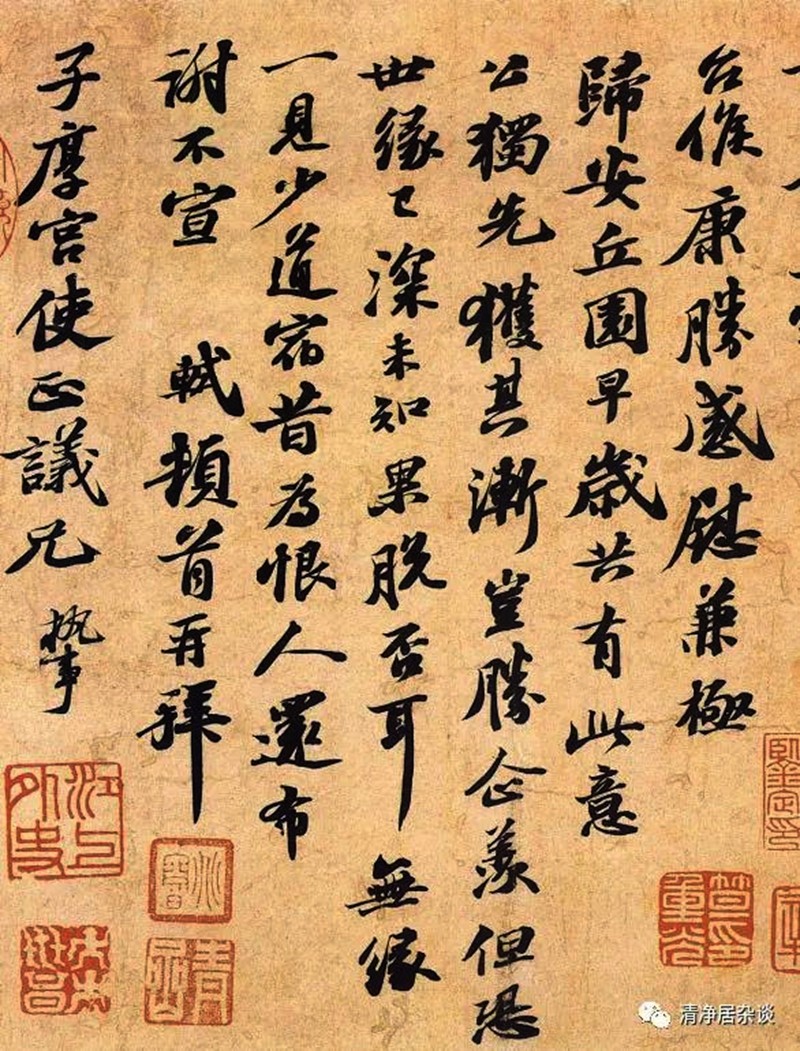 台候康勝感慰兼極
歸安丘園早歲共有此意
公獨先獲其漸豈勝企羨但恐
世緣已深未知果脫否耳無緣
一見少道宿昔為恨人還布
謝不宣 軾頓首再拜
子厚宮使正議兄執事
江上外史
清净居杂谈